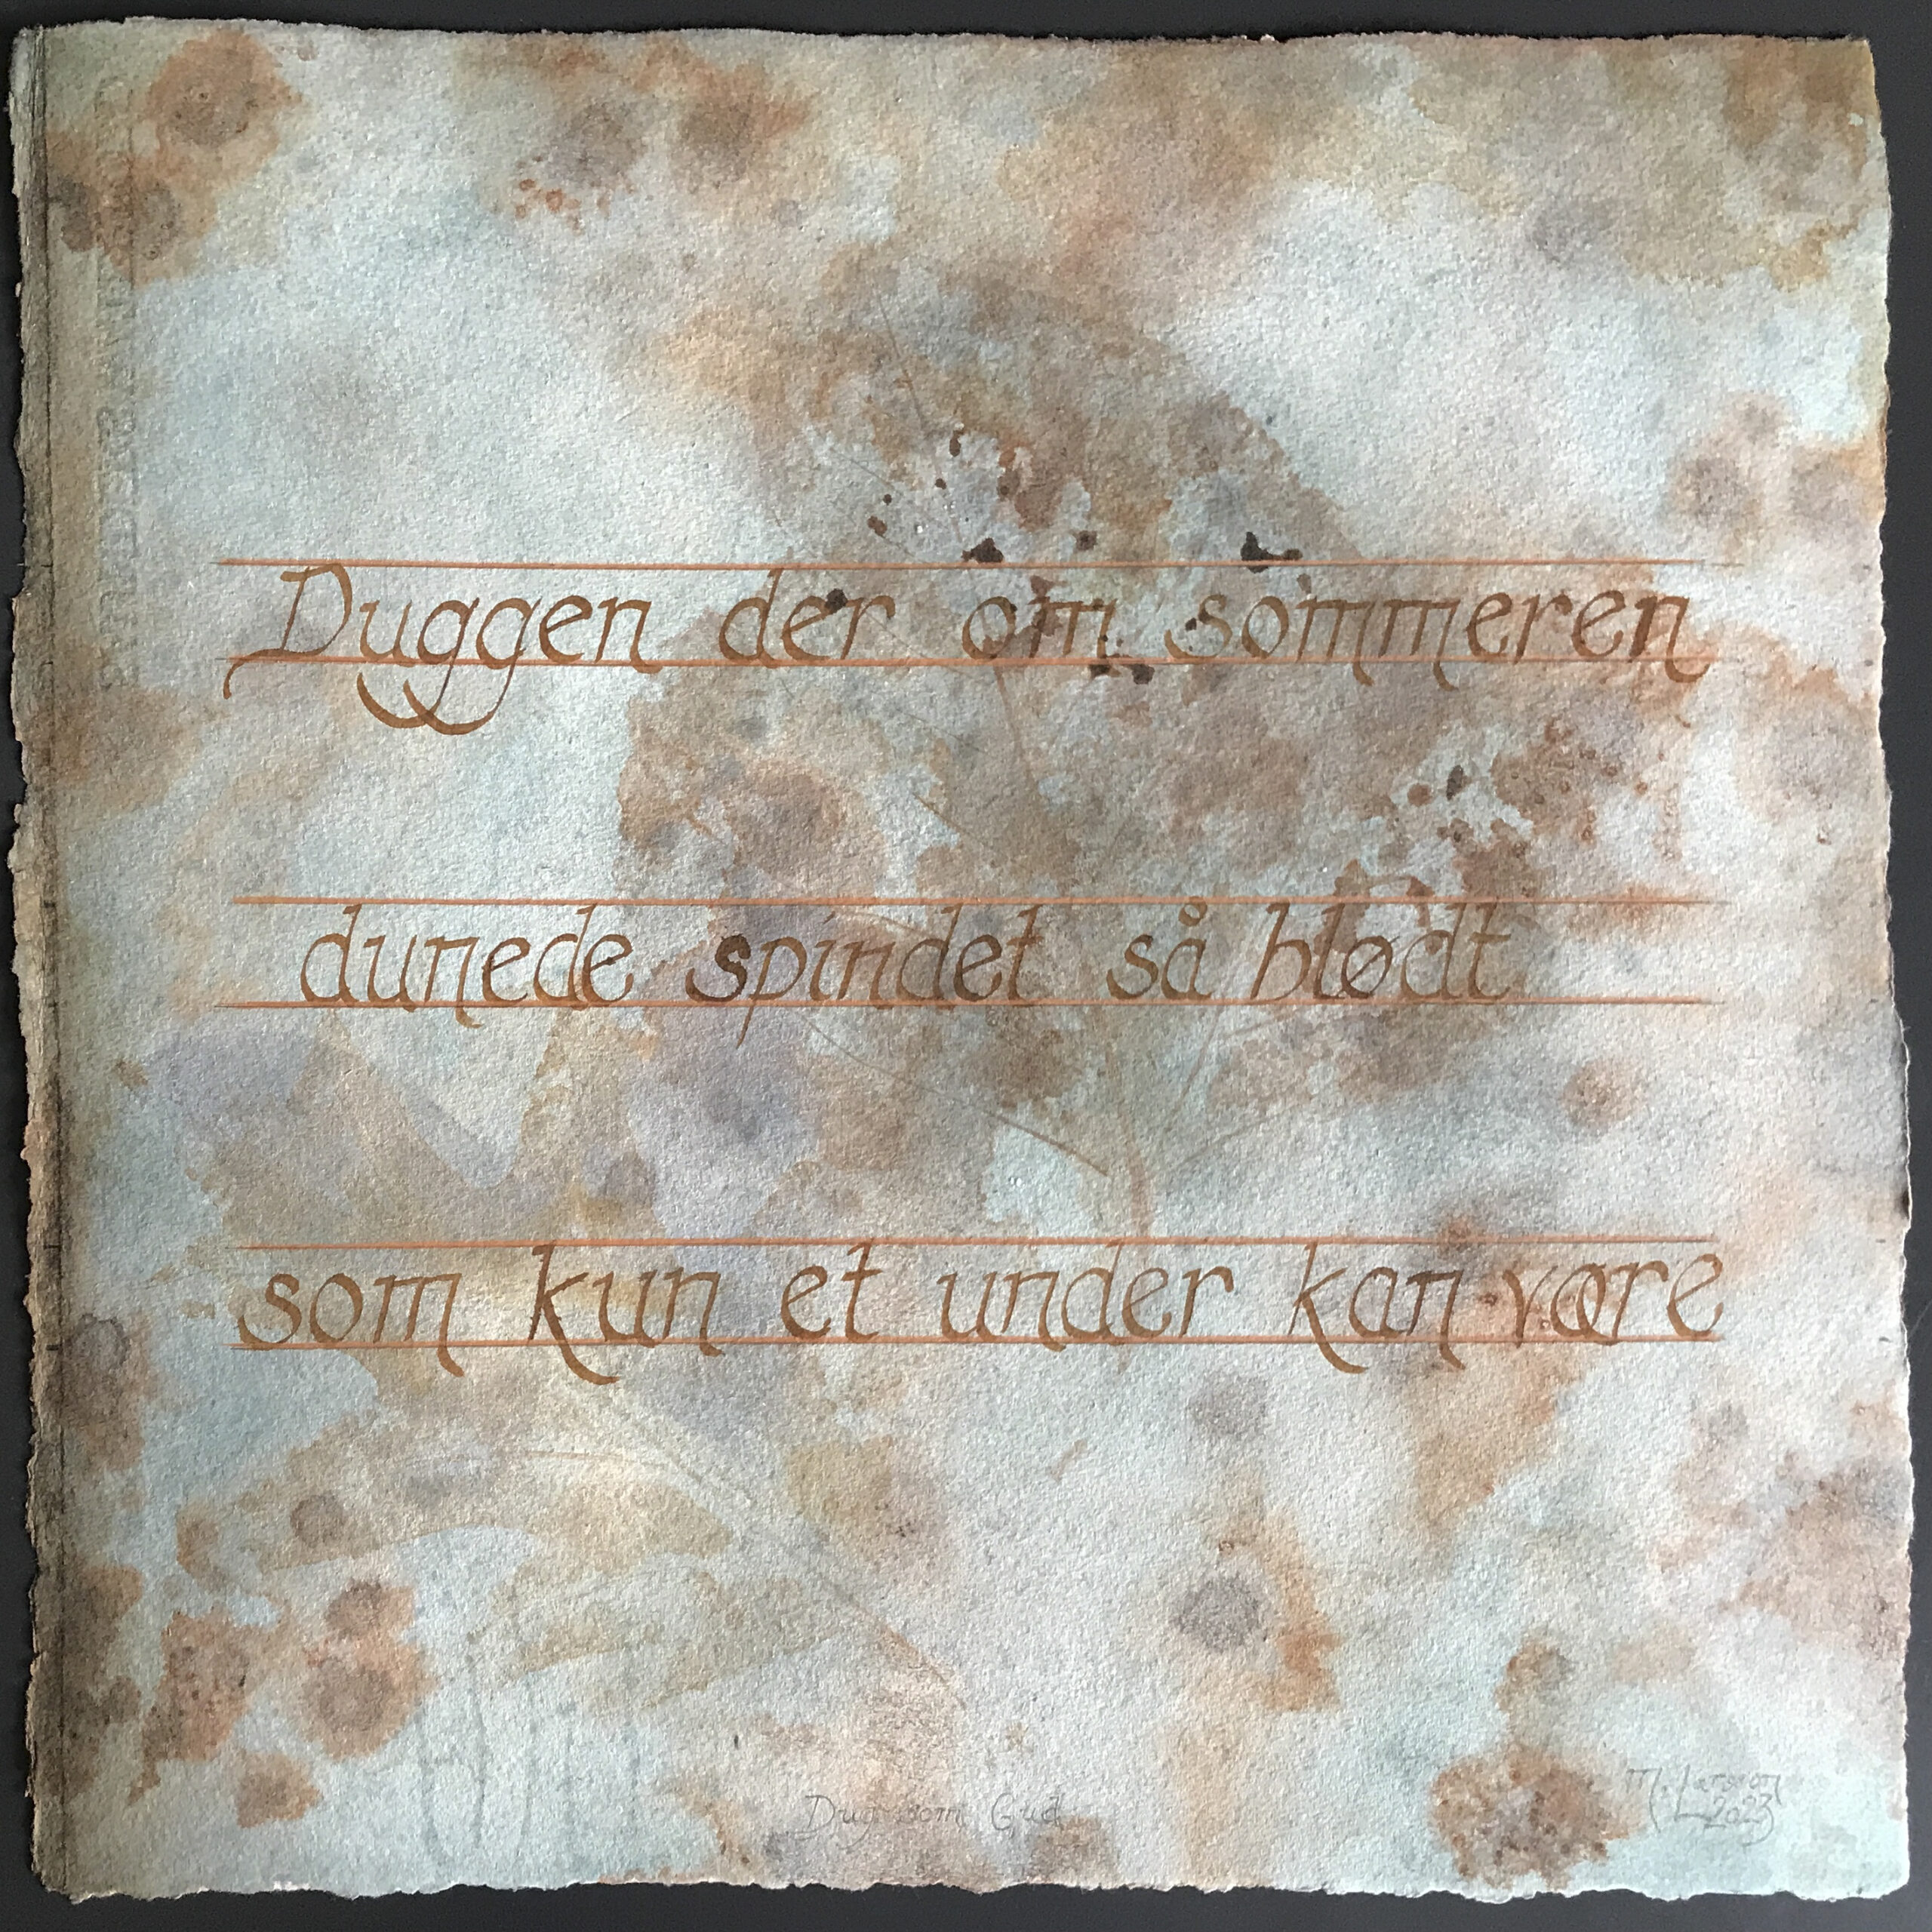 Duggen der om sommeren
dunede spindet så blødt
som kun et under kan være
Dug som Gud
M. Larsson
2023